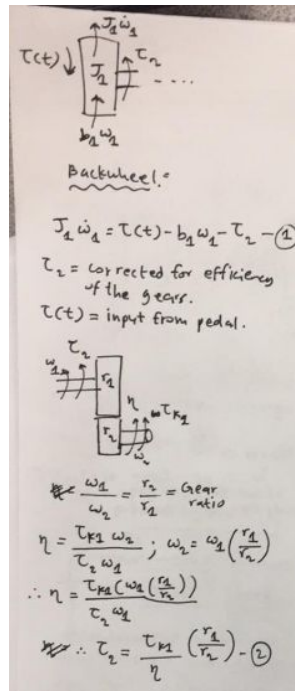 J₁ω̇₁
τ(t) ↓ J₁ τ₂ ....
b₁ω₁
Backwheel:
J₁ω̇₁ = τ(t) - b₁ω₁ - τ₂ - ①
τ₂ = corrected for efficiency
of the gears.
τ(t) = input from pedal.
τ₂
ω₁ r₁
η τₖ₁
r₂
ω₂
ω₁/ω₂ = r₂/r₁ = Gear
ratio
η = τₖ₁ ω₂ / τ₂ ω₁ ; ω₂ = ω₁(r₁/r₂)
∴ η = τₖ₁(ω₁(r₁/r₂)) / τ₂ ω₁
∴ τ₂ = τₖ₁/η (r₁/r₂) - ②